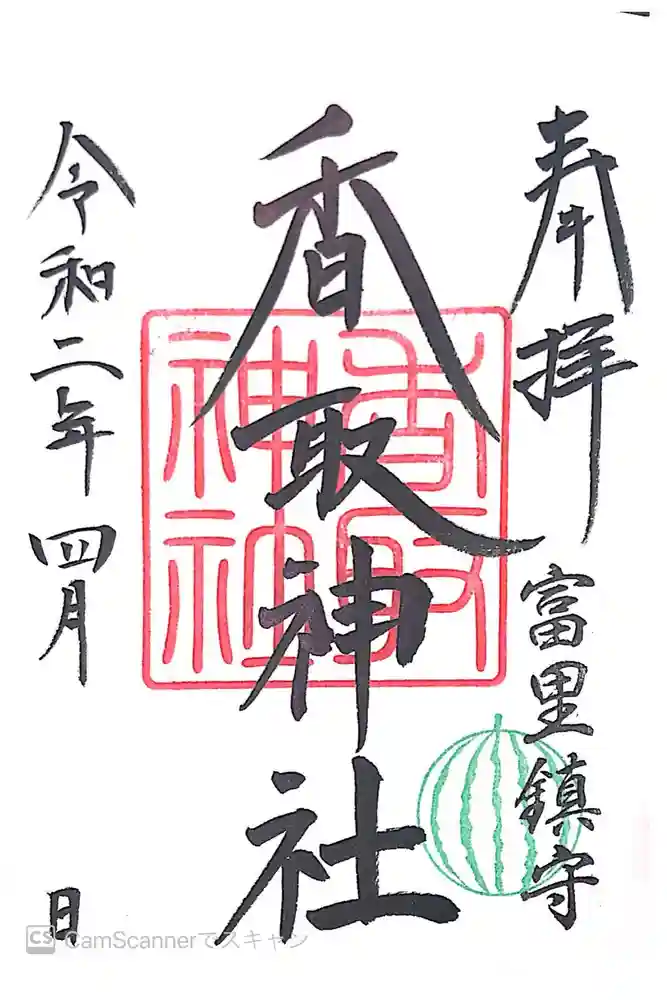 奉拝
富里鎮守
香取神社
香取神社
令和二年四月 日
CS CamScannerでスキャン